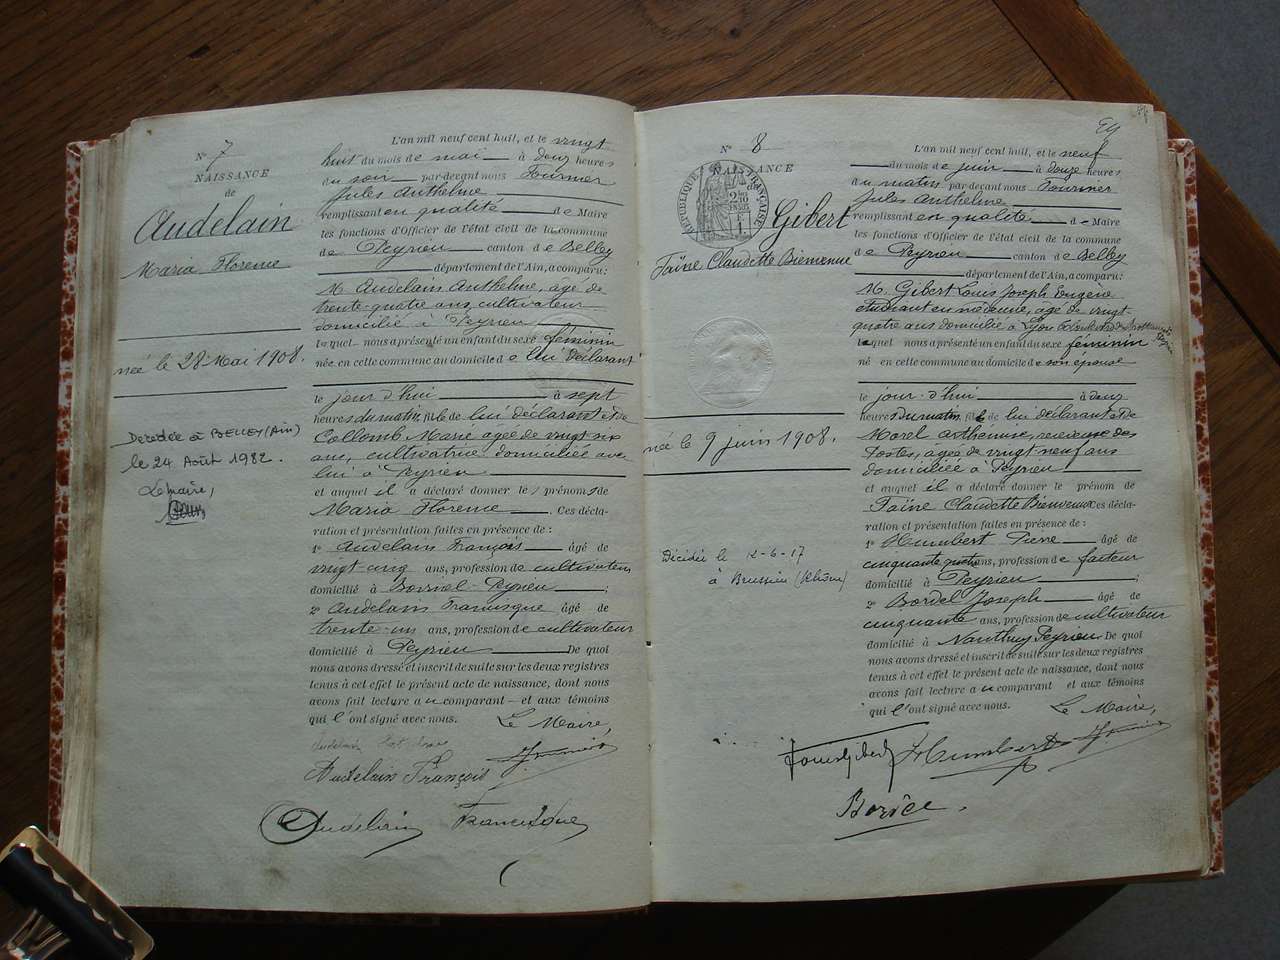 N° 7
NAISSANCE
de
Audelain
Maria Florence
née le 28 Mai 1908.
Décédée à BELLEY (Ain)
le 24 Août 1982.
Le maire,
L'an mil neuf cent huit, et le vingt
huit du mois de mai à douze heures
du soir par-devant nous Fournier
Jules Anthelme
remplissant en qualité de Maire
les fonctions d'Officier de l'état civil de la commune
de Peyrieu canton de Belley
département de l'Ain, a comparu:
M. Audelain Anthelme, âgé de
trente-quatre ans, cultivateur
domicilié à Peyrieu
lequel nous a présenté un enfant du sexe féminin
née en cette commune au domicile de lui déclarant
le jour d'hui à sept
heures du matin, fille de lui déclarant et de
Collomb Marie âgée de vingt six
ans, cultivatrice domiciliée avec
lui à Peyrieu
et auquel il a déclaré donner les prénoms de
Maria Florence Ces décla-
ration et présentation faites en présence de :
1° Audelain François âgé de
vingt cinq ans, profession de cultivateur
domicilié à Peyrieu ;
2° Audelain Francisque âgé de
trente-un ans, profession de cultivateur
domicilié à Peyrieu De quoi
nous avons dressé et inscrit de suite sur les deux registres
tenus à cet effet le présent acte de naissance, dont nous
avons fait lecture au comparant et aux témoins
qui l'ont signé avec nous. Le Maire,
Audelain François
Audelain Francisque
N° 8
NAISSANCE
RÉPUBLIQUE FRANÇAISE
Gibert
Faïne Claudette Bienvenue
née le 9 juin 1908.
Décédée le 12-6-17
à Brussieu (Rhône)
L'an mil neuf cent huit, et le neuf
du mois de juin à douze heures
du matin par-devant nous Fournier
Jules Anthelme
remplissant en qualité de Maire
les fonctions d'Officier de l'état civil de la commune
de Peyrieu canton de Belley
département de l'Ain, a comparu:
M. Gibert Louis Joseph Eugène
étudiant en médecine, âgé de vingt
quatre ans domicilié à Lyon
lequel nous a présenté un enfant du sexe féminin
né en cette commune au domicile de son épouse
le jour d'hui à deux
heures du matin, fille de lui déclarant et de
Morel Arthémise, receveuse des
Postes, âgée de vingt neuf ans
domiciliée à Peyrieu
et auquel il a déclaré donner le prénom de
Faïne Claudette Bienvenue Ces décla-
ration et présentation faites en présence de :
1° Humbert Pierre âgé de
cinquante ans, profession de facteur
domicilié à Peyrieu ;
2° Bordel Joseph âgé de
cinquante ans, profession de cultivateur
domicilié à Nanthuy Peyrieu De quoi
nous avons dressé et inscrit de suite sur les deux registres
tenus à cet effet le présent acte de naissance, dont nous
avons fait lecture au comparant et aux témoins
qui l'ont signé avec nous. Le Maire,
Humbert